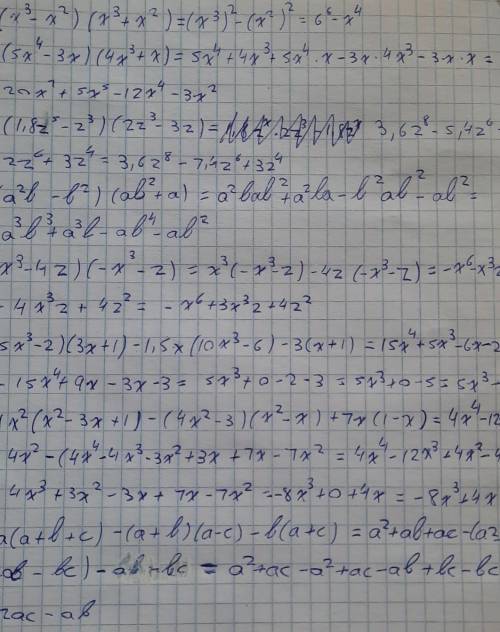 (x³ - x²) (x³ + x²) = (x³)² - (x²)² = 6⁶ - x⁴
(5x⁴ - 3x) (4x³ + x) = 5x⁴ + 4x³ + 5x⁴ · x - 3x · 4x³ - 3x · x =
20x⁷ + 5x⁵ - 12x⁴ - 3x²
(1,8z⁵ - z³) (2z³ - 3z) = 3,6z⁸ - 5,4z⁶ -
2z⁶ + 3z⁴ = 3,6z⁸ - 7,4z⁶ + 3z⁴
(a²b - b²) (ab² + a) = a²bab² + a²ba - b²ab² - ab² =
a³b³ + a³b - ab⁴ - ab²
x³ - 4z) (-x³ - z) = x³(-x³ - z) - 4z (-x³ - z) = -x⁶ - x³z
- 4x³z + 4z² = - x⁶ + 3x³z + 4z²
5x³ - 2) (3x + 1) - 1,5x (10x³ - 6) - 3(x + 1) = 15x⁴ + 5x³ - 6x - 2
- 15x⁴ + 9x - 3x - 3 = 5x³ + 0 - 2 - 3 = 5x³ + 0 - 5 = 5x³ -
x² (x² - 3x + 1) - (4x² - 3) (x² - x) + 7x (1 - x) = 4x⁴ - 12
4x² - (4x⁴ - 4x³ - 3x² + 3x + 7x - 7x² = 4x⁴ - 12x³ + 4x² - 4
4x³ + 3x² - 3x + 7x - 7x² = -8x³ + 0 + 4x = -8x³ + 4x
a(a + b + c) - (a + b) (a - c) - b(a + c) = a² + ab + ac - (a²
ab - bc) - ab - bc = a² + ac - a² + ac - ab + bc - bc
2ac - ab